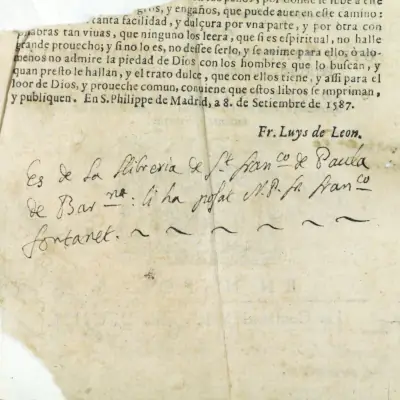 gros, y engaños, que puede auer en este camino:
tanta facilidad, y dulçura por vna parte, y por otra con
palabras tan viuas, que ninguno los leera, que si es espiritual, no halle
grande prouecho; y si no lo es, no dessee serlo, y se anime para ello, ò alo-
menos no admire la piedad de Dios con los hombres que lo buscan, y
quan presto le hallan, y el trato dulce, que con ellos tiene, y assi para el
loor de Dios, y prouecho comun, conuiene que estos libros se impriman,
y publiquen. En S. Philippe de Madrid, a 8. de Setiembre de 1587.
Fr. Luys de Leon.
Es de la llibreria de St. Franco de Paula
de Barna: li ha posat N. P. fr. Franco
Fontanet. ~ ~ ~ ~ ~ ~